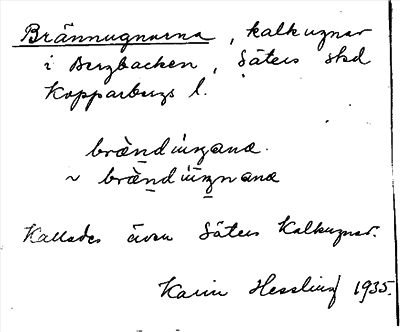 Brännugnarna, kalkugnar
i Bergbacken, Säters stad
Kopparbergs l.
brä̀nd úugana.
~ brä̀nd úugnana
Kallades även Säters Kalkugnar.
Karin Hessling 1935.